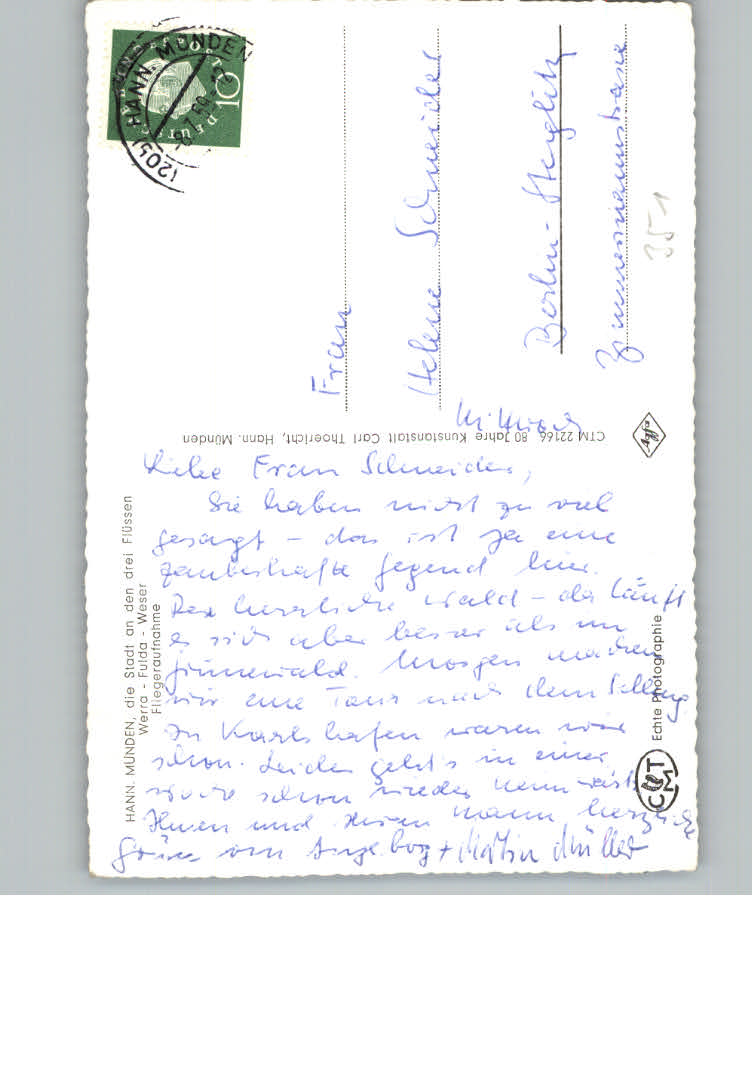 (20b) HANN. MÜNDEN
DEUTSCHE BUNDESPOST
10
Frau
Helene Schneider
Berlin-Steglitz
Zimmermannstrasse
35 1
CTM 22166 80 Jahre Kunstanstalt Carl Thoericht, Hann. Münden
Agfa
HANN. MÜNDEN, die Stadt an den drei Flüssen
Werra - Fulda - Weser
Fliegeraufnahme
Echte Photographie
CTM
Liebe Frau Schneider,
Sie haben nicht zu viel
gesagt – das ist ja eine
zauberhafte Gegend hier.
Der herrliche Wald – da läuft
es sich aber besser als im
Grünewald. Morgen machen
wir eine Tour nach dem Solling.
In Karlshafen waren wir
schon. Leider geht's in einer
Woche schon wieder heimwärts.
Ihnen und Ihrem Mann herzliche
Grüße von Ingeborg + Martin Müller